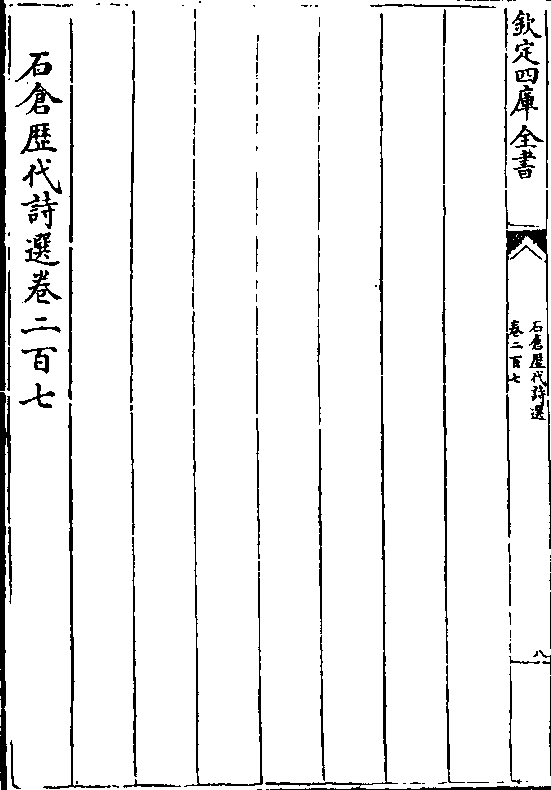 欽定四庫全書
石倉歴代詩選
卷二百七
八
石倉歷代詩選卷二百七